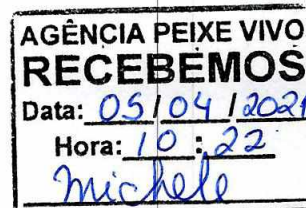 AGÊNCIA PEIXE VIVO
RECEBEMOS
Data: 05/04/202
Hora: 10:22
Michele